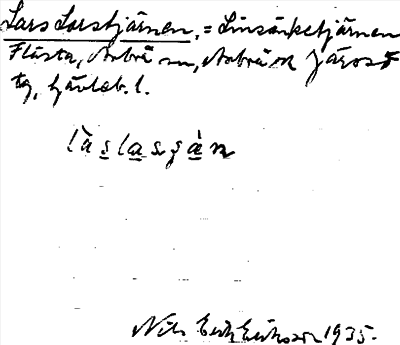 Lars Larstjärnen, = Linsänketjärnen
Flästa, Arbrå sn, Arbrå och Järvsö
tg, Gävleb. l.
làslasʂàn
Nils Erik Eriksson 1935.